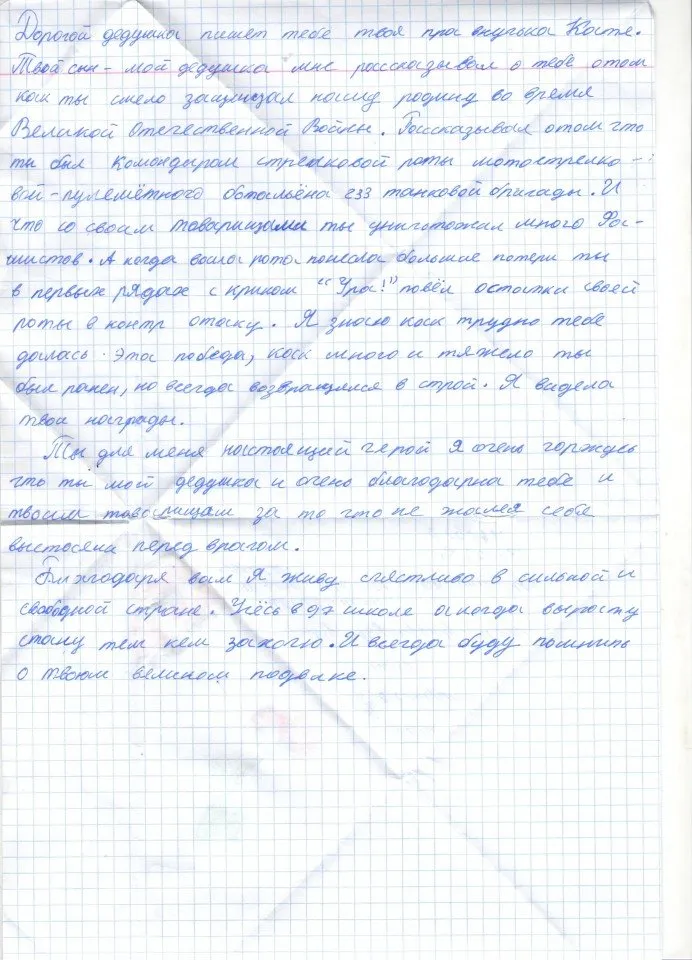 Дорогой дедушка пишет тебе твоя пра внучька Катя.
Твой сын - мой дедушка мне рассказывал о тебе о том
как ты смело защищал нашу родину во время
Великой Отечественной Войны. Рассказывал о том что
ты был командиром стрелковой роты мотострелко-
вой-пулемётного батальёна 233 танковой бригады. И
что со своим товарищами ты уничтожил много Фа-
шистов. А когда ваша рота понесла большие потери ты
в первых рядах с криком "Ура!" повёл остатки своей
роты в контр отаку. Я знаю как трудно тебе
далась эта победа, как много и тяжело ты
был ранен, но всегда возвращялся в строй. Я видела
твои награды.
Ты для меня настоящий герой я очень горжусь
что ты мой дедушка и очень благодарна тебе и
твоим таварищам за то что не жалея себя
выстояли перед врагом.
Благодаря вам я живу счястливо в сильной и
свободной стране. Учусь в 97 школе а когда вырасту
стану тем кем захочю. И всегда буду помнить
о твоём великом подвике.